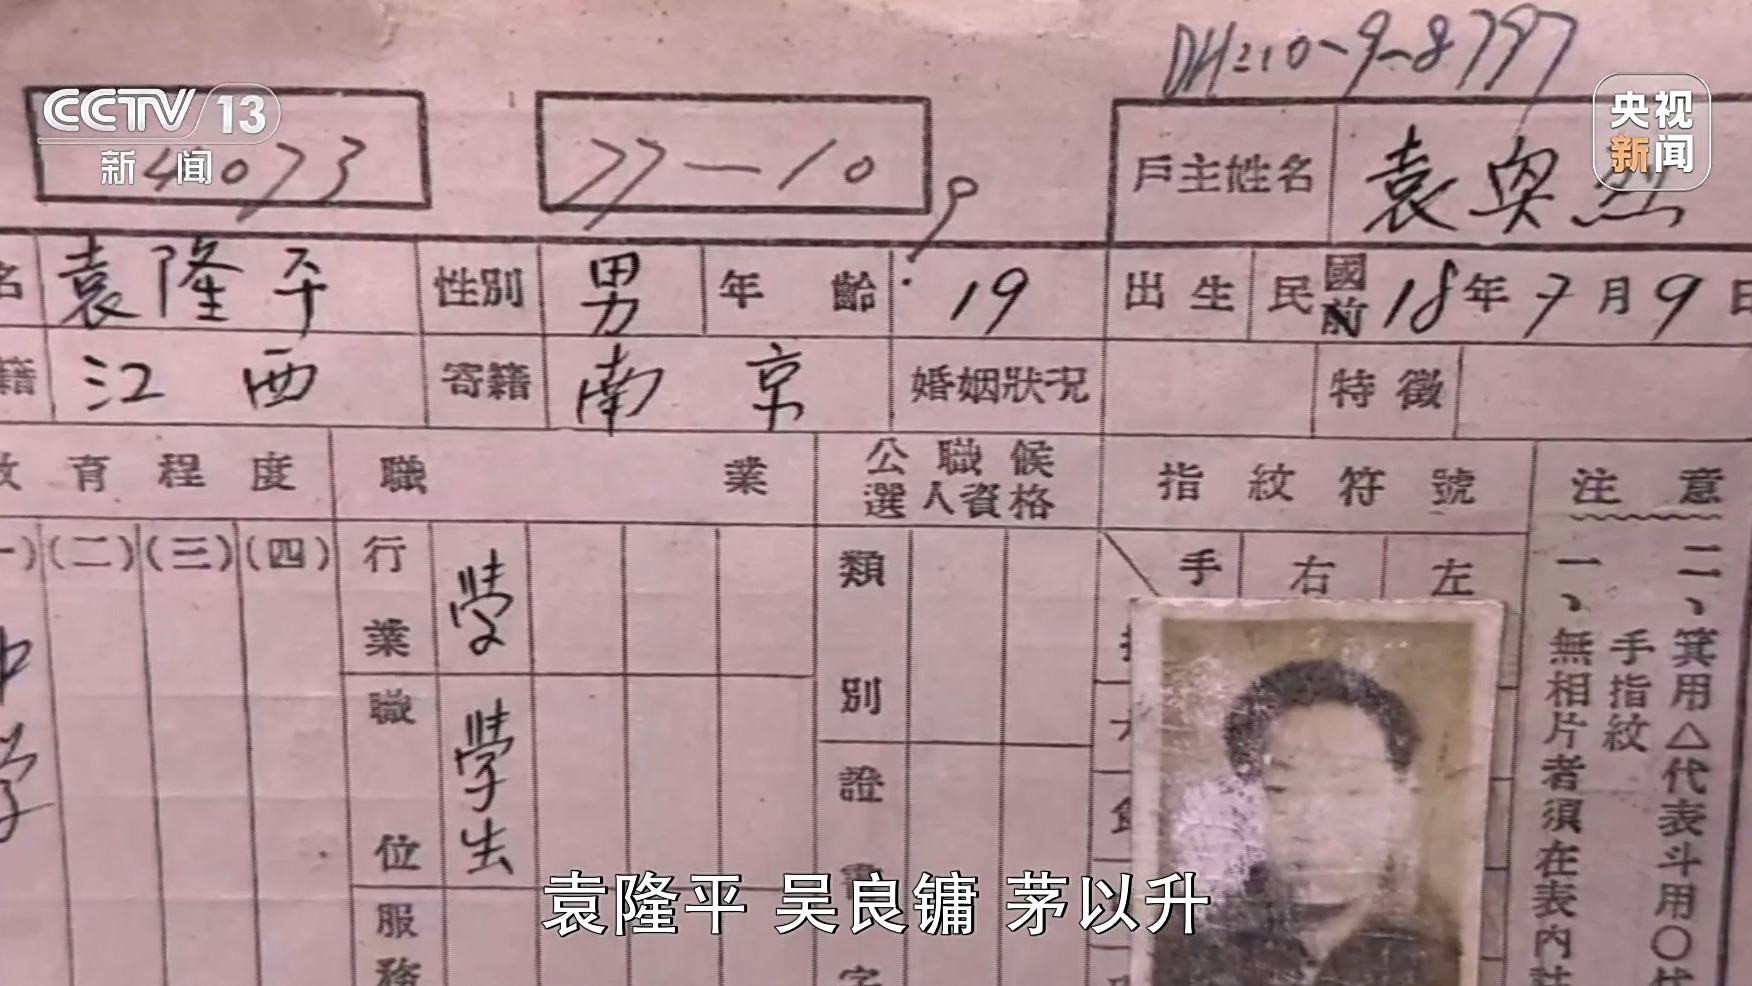 DH:10-9-8797
CCTV 13
新闻
央视
新闻
4073
27-10
9
戶主姓名 袁奐烈
名 袁隆平 性別 男 年齡 19 出生 民國前 18年7月9日
籍 江西 寄籍 南京 婚姻狀況 特徵
教育程度 職業 公職候選人資格 指紋符號 注意
(一)(二)(三)(四)
中學
行業 學
職位 學生
服務
類別
證書字
手 右 左
一、無相片者須在表內
手指紋
二、箕用△代表斗用〇代
袁隆平 吴良镛 茅以升